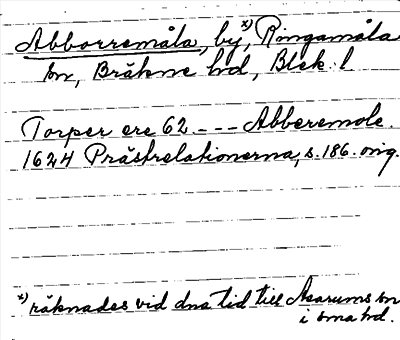 Abborremåla, by,x) Ringamåla
sn, Bräkne hd, Blek. l
Torper ere 62 --- Abberemole.
1624 Prästrelationerna, s. 186. orig.
x) räknades vid dna tid till Asarums sn
i sma hd.